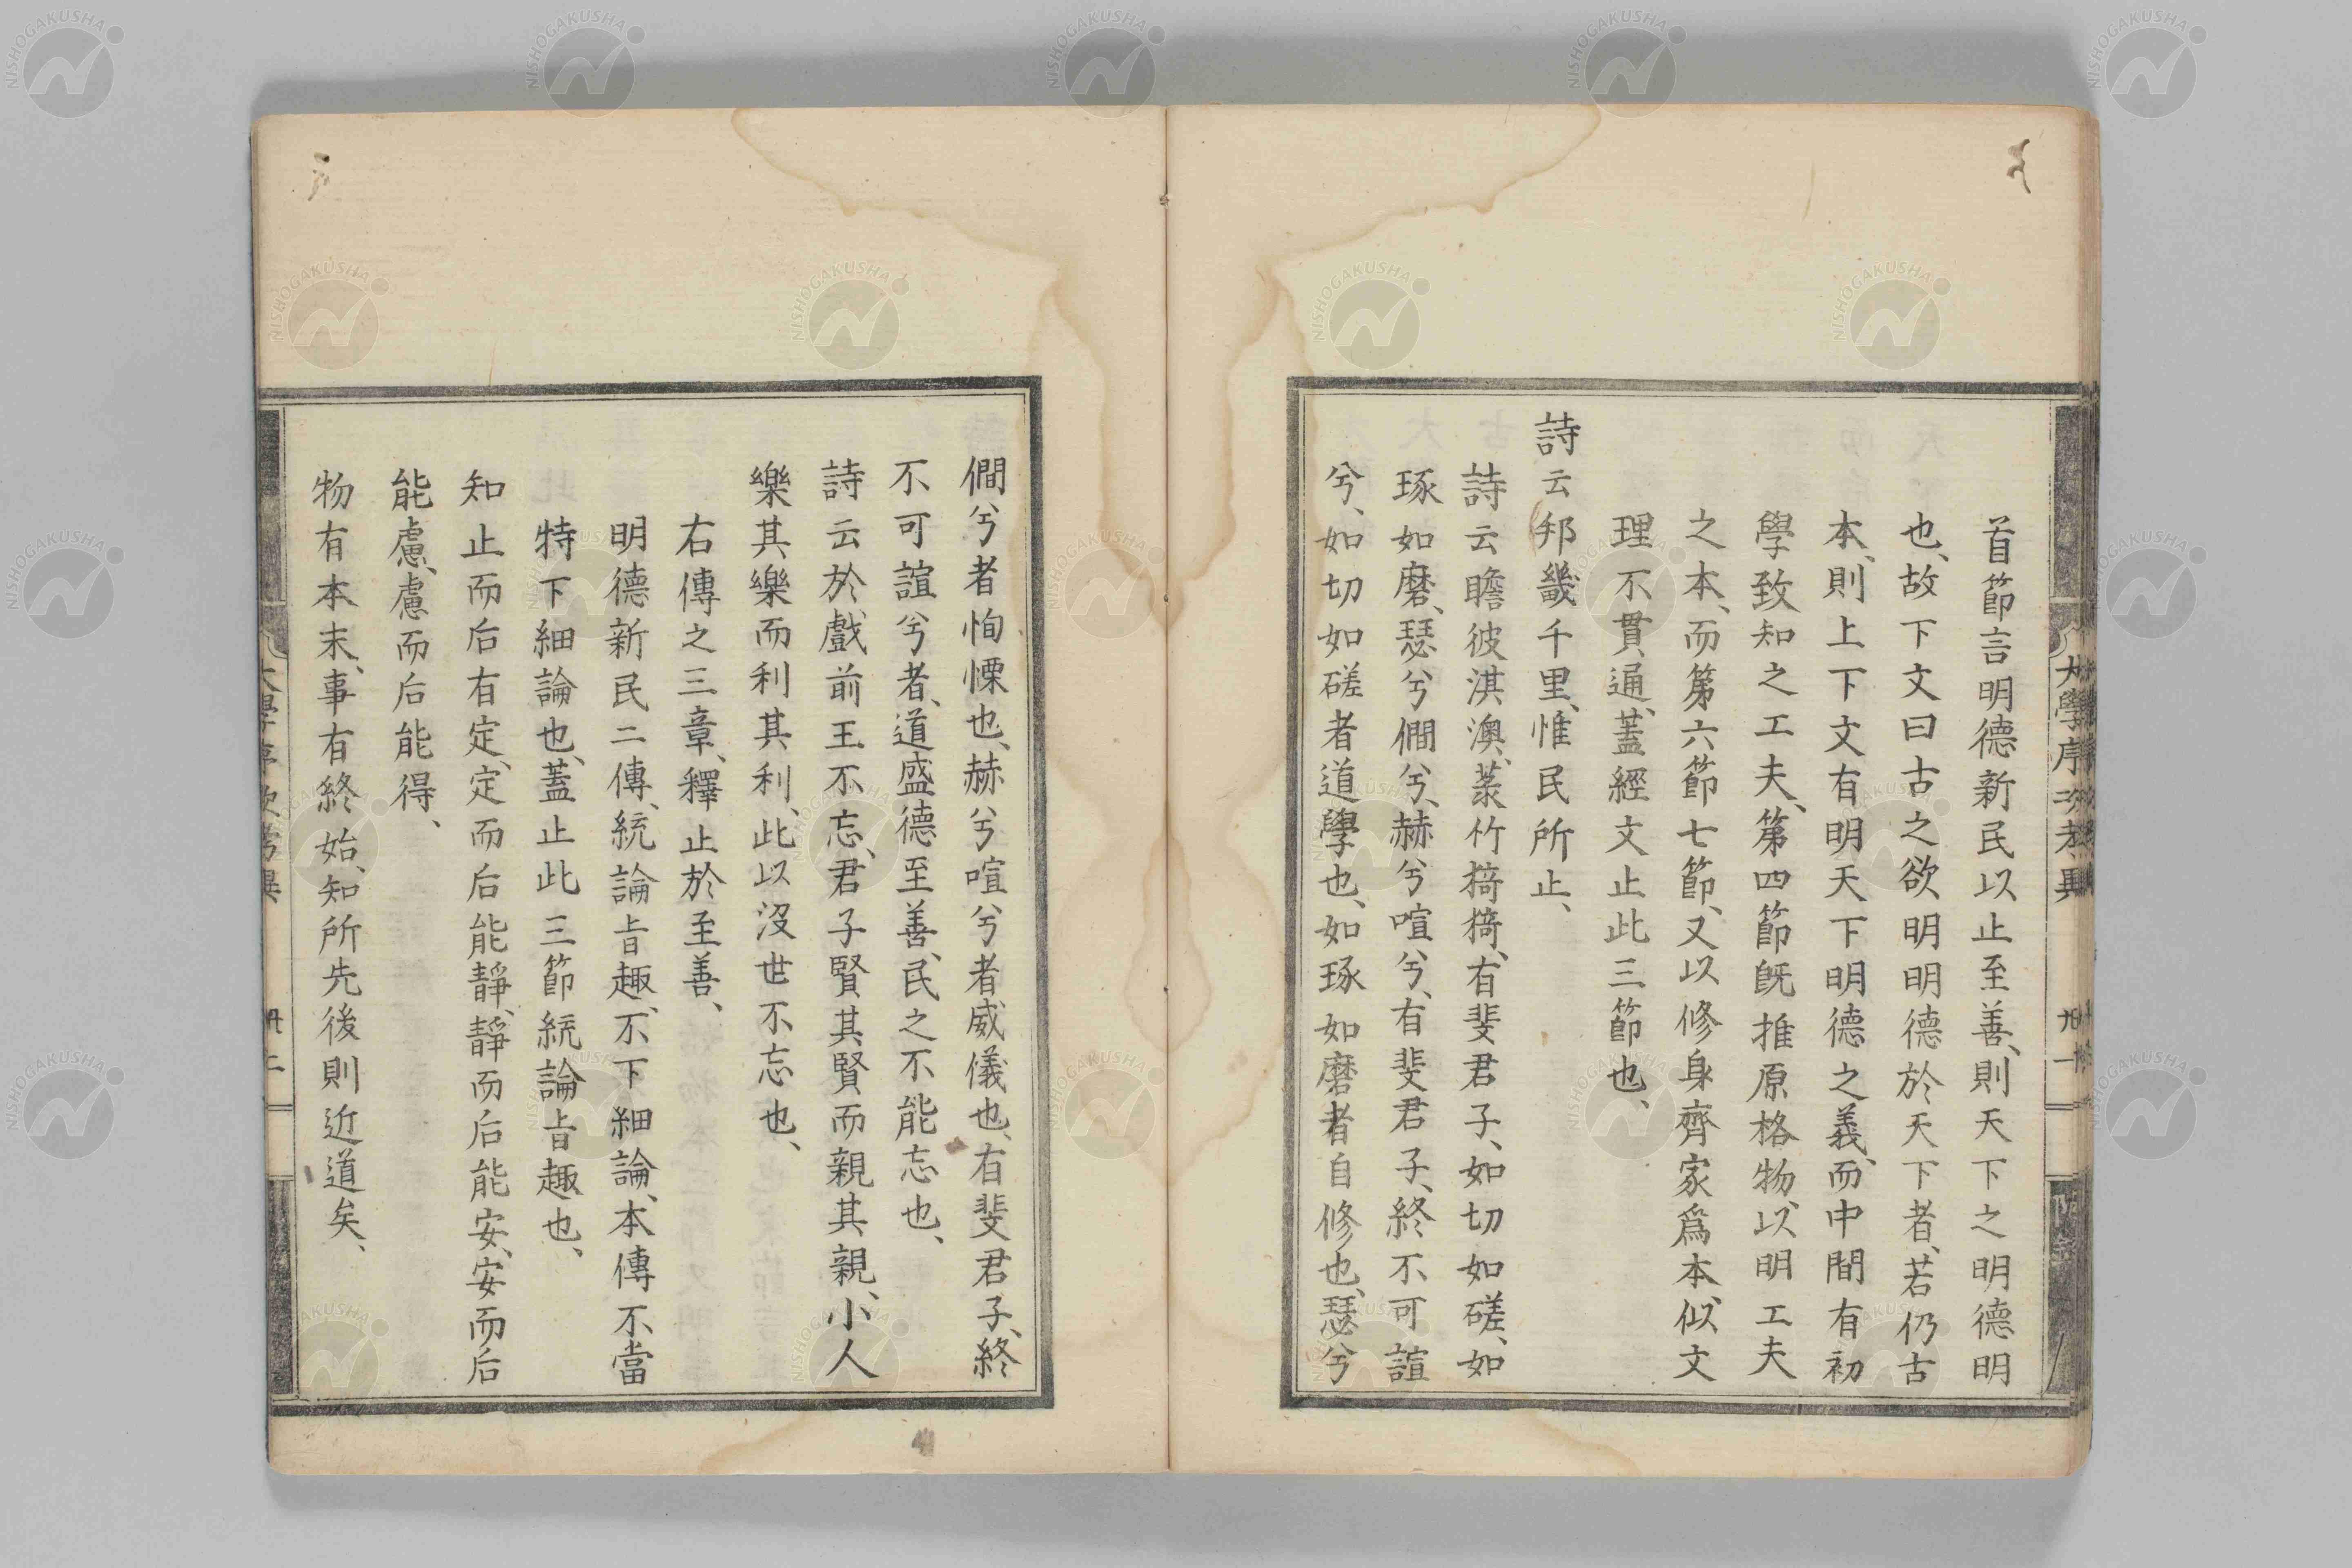 首節言明德新民以止至善、則天下之明德明
也、故下文曰古之欲明明德於天下者、若仍古
本、則上下文有明天下明德之義、而中間有初
學致知之工夫、第四節既推原格物、以明工夫
之本、而第六節七節、又以修身齊家爲本、似文
理不貫通、蓋經文止此三節也、
詩云邦畿千里、惟民所止、
詩云瞻彼淇澳、菉竹猗猗、有斐君子、如切如磋、如
琢如磨、瑟兮僩兮、赫兮喧兮、有斐君子、終不可諠
兮、如切如磋者道學也、如琢如磨者自修也、瑟兮
僩兮者恂慄也、赫兮喧兮者威儀也、有斐君子、終
不可諠兮者、道盛德至善、民之不能忘也、
詩云於戲前王不忘、君子賢其賢而親其親、小人
樂其樂而利其利、此以沒世不忘也、
右傳之三章、釋止於至善、
明德新民二傳、統論旨趣、不下細論、本傳不當
特下細論也、蓋止此三節統論旨趣也、
知止而后有定、定而后能靜、靜而后能安、安而后
能慮、慮而后能得、
物有本末、事有終始、知所先後則近道矣、
NISHOGAKUSHA